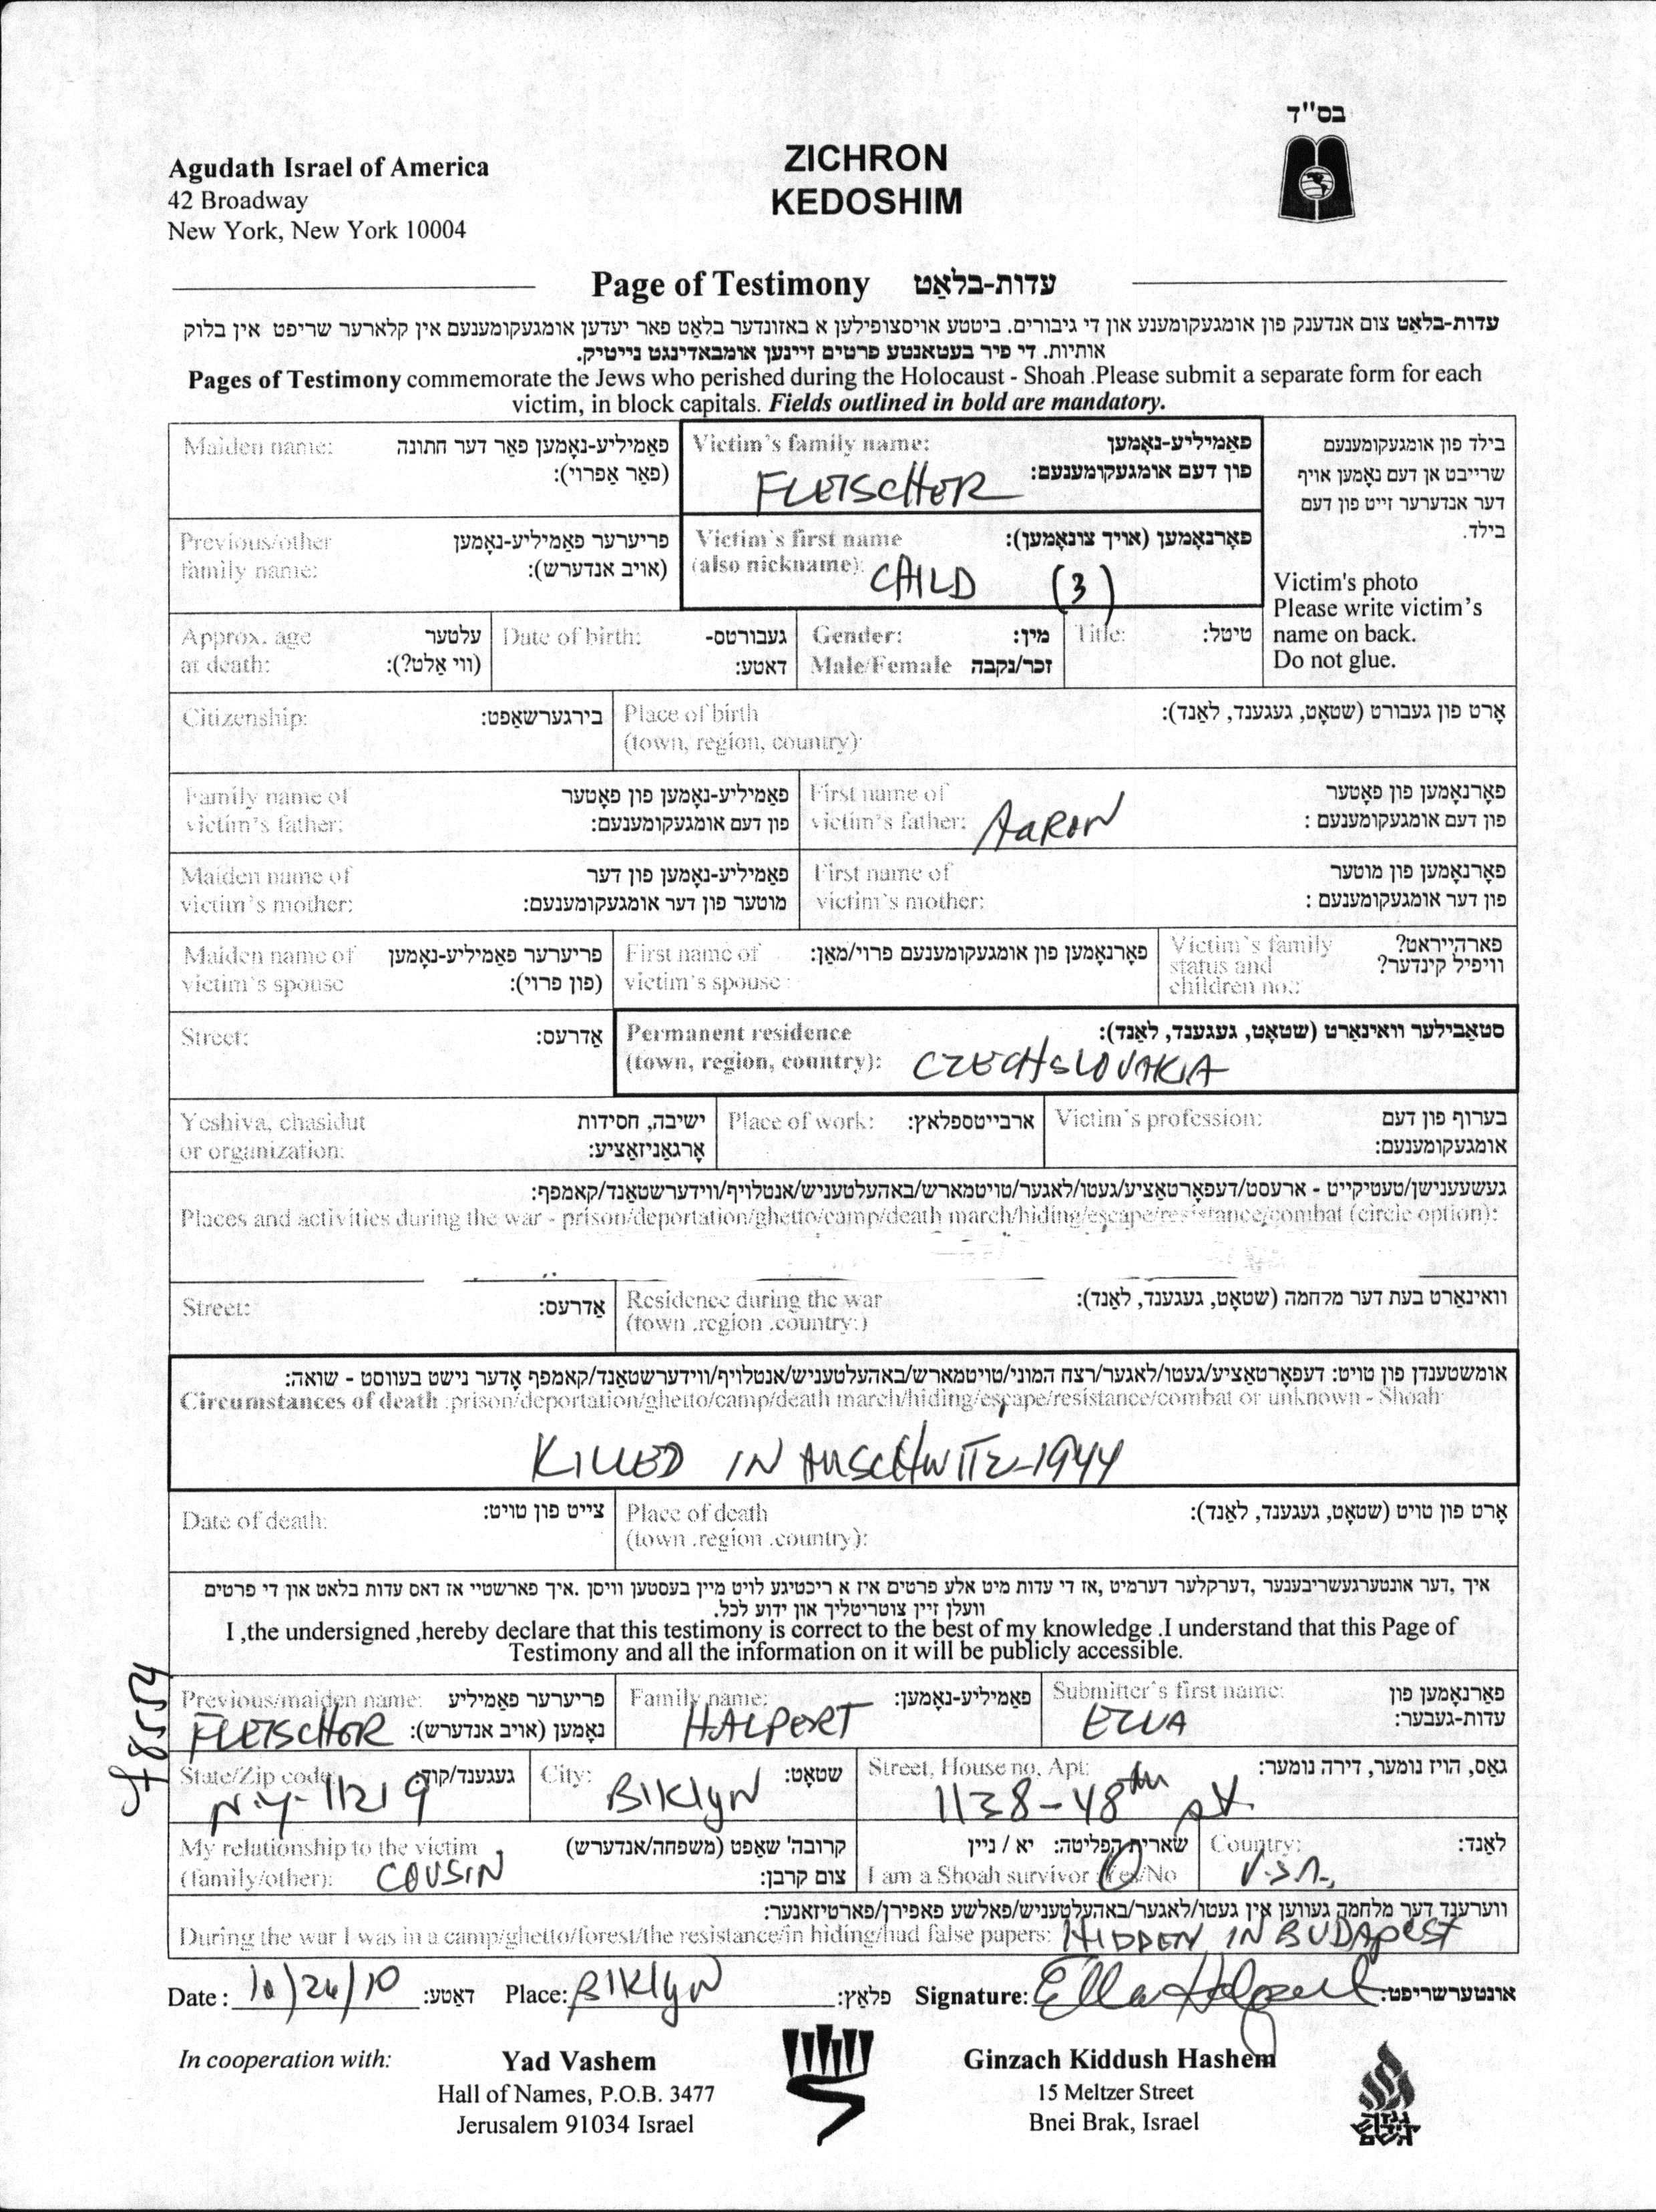 בס"ד
Agudath Israel of America
42 Broadway
New York, New York 10004
ZICHRON
KEDOSHIM
Page of Testimony עדות-בלאַט
עדות-בלאַט צום אנדענק פון אומגעקומענע און די גיבורים. ביטטע אויסצופילען א באזונדער בלאַט פאר יעדען אומגעקומענעם אין קלארער שריפט אין בלוק
אותיות. די פיר בעטאנטע פרטים זיינען אומבאדינגט נייטיק.
Pages of Testimony commemorate the Jews who perished during the Holocaust - Shoah .Please submit a separate form for each
victim, in block capitals. Fields outlined in bold are mandatory.
Maiden name: פאַמיליע-נאָמען פאַר דער חתונה
(פאַר אַפרוי):
Victim's family name: פאַמיליע-נאָמען
פון דעם אומגעקומענעם:
FLEISCHER
בילד פון אומגעקומענעם
שרייבט אן דעם נאָמען אויף
דער אנדערער זייט פון דעם
בילד.
Previous/other פריערער פאַמיליע-נאָמען
family name: (אויב אנדערש):
Victim's first name פאָרנאָמען (אויך צונאָמען):
(also nickname): CHILD (3)
Victim's photo
Please write victim's
name on back.
Do not glue.
Approx. age עלטער
at death: (ווי אַלט?):
Date of birth: געבורטס-
דאטע:
Gender: מין:
Male/Female זכר/נקבה
Title: טיטל:
Citizenship: בירגערשאַפט:
Place of birth אָרט פון געבורט (שטאָט, געגענד, לאַנד):
(town, region, country):
Family name of פאַמיליע-נאָמען פון פאָטער
victim's father: פון דעם אומגעקומענעם:
First name of פאָרנאָמען פון פאָטער
victim's father: פון דעם אומגעקומענעם :
AARON
Maiden name of פאַמיליע-נאָמען פון דער
victim's mother: מוטער פון דער אומגעקומענעם:
First name of פאָרנאָמען פון מוטער
victim's mother: פון דער אומגעקומענעם :
Maiden name of פריערער פאַמיליע-נאָמען
victim's spouse (פון פרוי):
First name of פאָרנאָמען פון אומגעקומענעם פרוי/מאַן:
victim's spouse :
Victim's family פארהייראט?
status and וויפיל קינדער?
children no.:
Street: אַדרעס:
Permanent residence סטאַבילער וואינאָרט (שטאָט, געגענד, לאַנד):
(town, region, country): CZECHSLOVAKIA
Yeshiva, chasidut ישיבה, חסידות
or organization: אָרגאַניזאַציע:
Place of work: ארבייטספלאץ:
Victim's profession: בערוף פון דעם
אומגעקומענעם:
געשעענישן/טעטיקייט - ארעסט/דעפאָרטאַציע/געטו/לאגער/טויטמארש/באהעלטעניש/אנטלויף/ווידערשטאַנד/קאמפף:
Places and activities during the war - prison/deportation/ghetto/camp/death march/hiding/escape/resistance/combat (circle option):
Street: אַדרעס:
Residence during the war וואינאָרט בעת דער מלחמה (שטאָט, געגענד, לאַנד):
(town .region .country:)
אומשטענדן פון טויט: דעפאָרטאַציע/געטו/לאגער/רצח המוני/טויטמארש/באהעלטעניש/אנטלויף/ווידערשטאַנד/קאמפף אָדער נישט בעוואוסט - שואה:
Circumstances of death :prison/deportation/ghetto/camp/death march/hiding/escape/resistance/combat or unknown - Shoah
KILLED IN AUSCHWITZ-1944
Date of death: צייט פון טויט:
Place of death אָרט פון טויט (שטאָט, געגענד, לאַנד):
(town .region .country):
איך ,דער אונטערגעשריבענער ,דערקלער דערמיט ,אז די עדות מיט אלע פרטים איז א ריכטיגע לויט מיין בעסטען וויסן .איך פארשטיי אז דאס עדות בלאט און די פרטים
וועלן זיין צוטריטליך און ידוע לכל.
I ,the undersigned ,hereby declare that this testimony is correct to the best of my knowledge .I understand that this Page of
Testimony and all the information on it will be publicly accessible.
Previous/maiden name: פריערער פאַמיליע
FLEISCHER נאָמען (אויב אנדערש):
Family name: פאַמיליע-נאָמען:
HALPERT
Submitter's first name: פאַרנאָמען פון
עדות-געבער:
ELLA
State/Zip code: געגענד/קוד:
N.Y. 11219
City: שטאָט:
BIKlyN
Street, House no, Apt: גאַס, הויז נומער, דירה נומער:
1138-48th st.
My relationship to the victim קרובה' שאַפט (משפחה/אנדערש)
(family/other): COUSIN צום קרבן:
שארית הפליטה: יא / ניין
I am a Shoah survivor :Yes/No
Country: לאַנד:
U.S.A.
ווערענד דער מלחמה געווען אין געטו/לאגער/באהעלטעניש/פאלשע פאפירן/פארטיזאנער:
During the war I was in a camp/ghetto/forest/the resistance/in hiding/had false papers: HIDDEN IN BUDAPEST
Date : 10/26/10 דאַטע: Place: BIKlyN פלאַץ: Signature: Ella Halpert אונטערשריפט:
In cooperation with:
Yad Vashem
Hall of Names, P.O.B. 3477
Jerusalem 91034 Israel
Ginzach Kiddush Hashem
15 Meltzer Street
Bnei Brak, Israel
גנזך
קידוש
השם